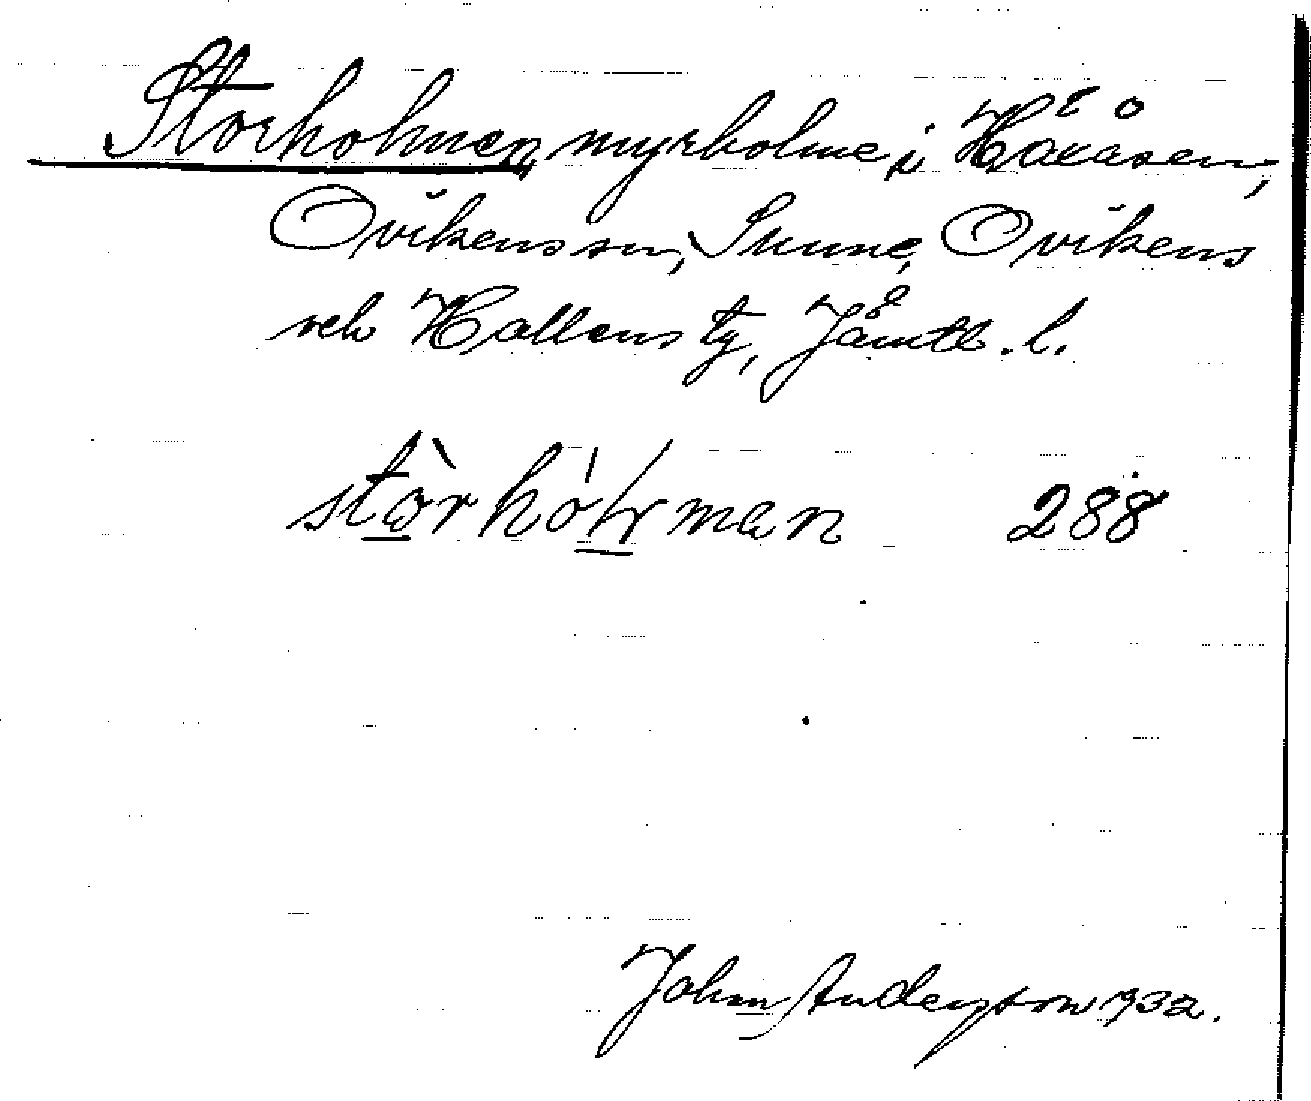 Storholmen, myrholme i Häråsen,
Ovikens sn, Sunne, Ovikens
och Hallens tg, Jämtl. l.
stòrhól̷man 288
John Andersson 1932.